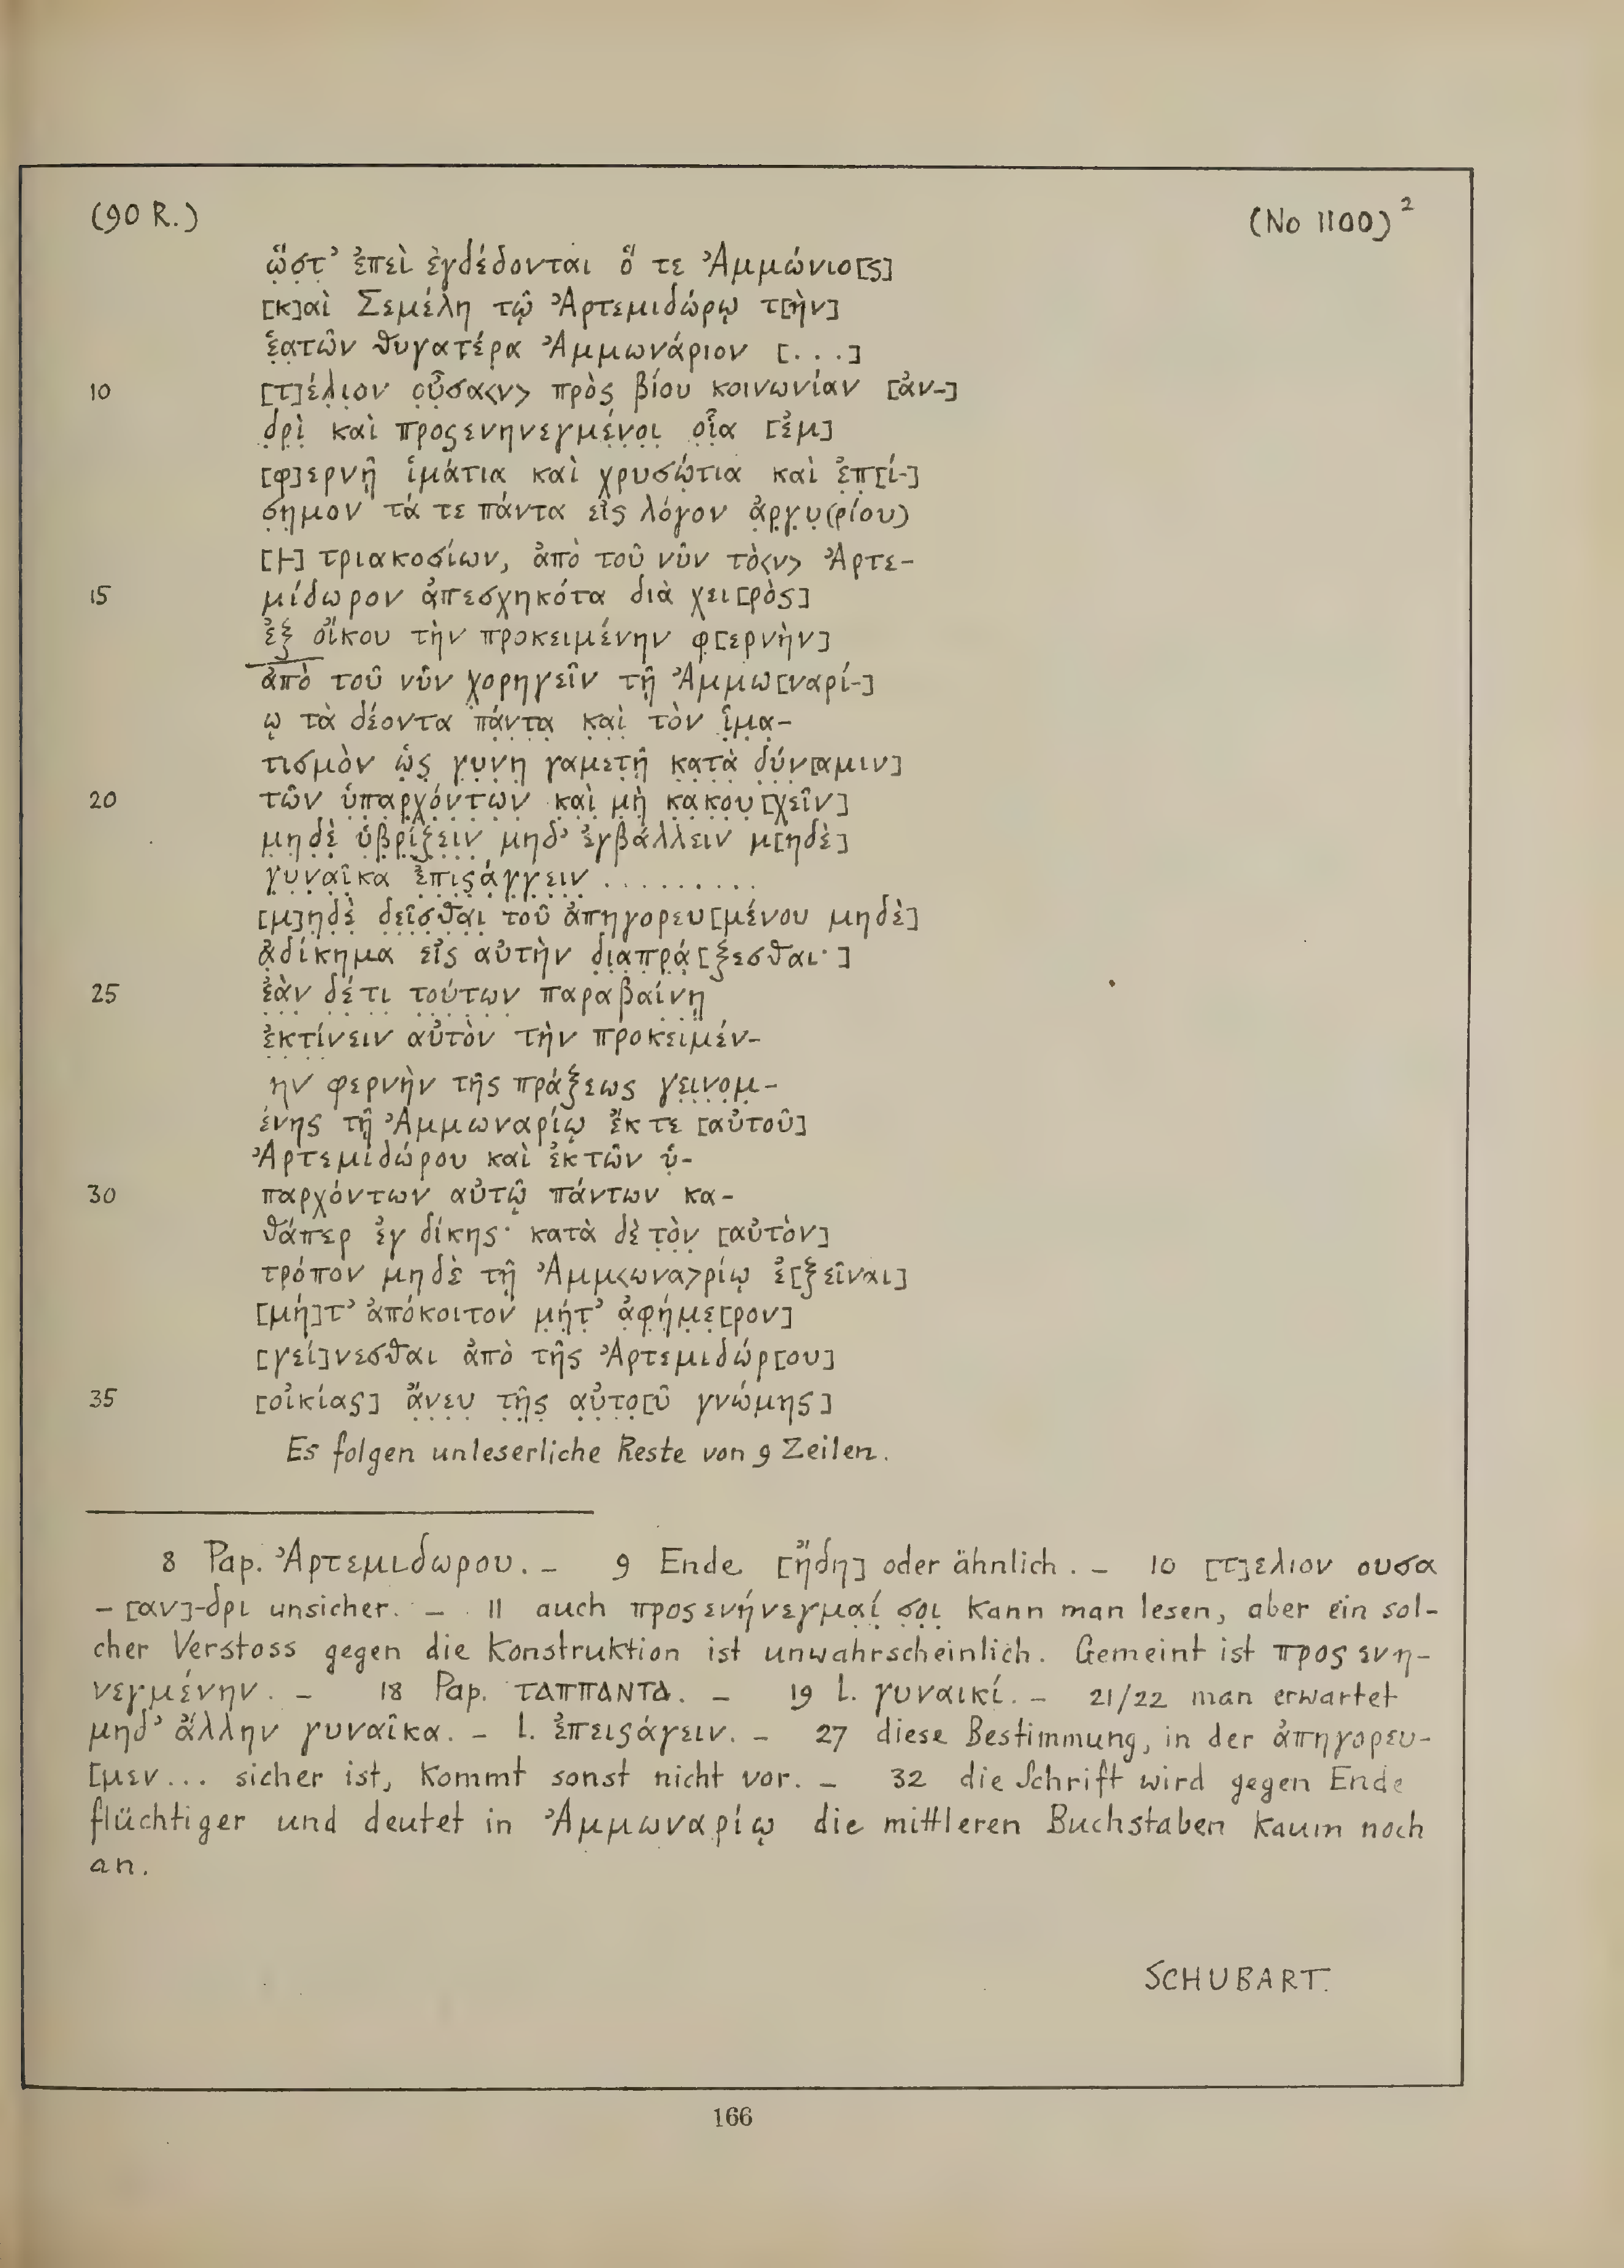 (90 R.) (No 1100)²
ὥ̣σ̣τ̣’ ἐπεὶ ἐγδέδονται ὅ τε Ἀμμώνιο[ς]
[κ]αὶ Σεμέλη τῷ Ἀρτεμιδώρῳ τ[ὴν]
ἑ̣α̣τῶν θυγατέρ̣α Ἀμμωνάριον [. . .]
10 [τ]έλ̣ι̣ον ο̣ὖ̣σ̣α<ν> πρὸς βίου κοινωνίαν [ἀν-]
δ̣ρ̣ὶ̣ καὶ προςενηνεγμέ̣ν̣ο̣ι̣ ο̣ἷ̣α [ἐμ]
[φ]ερνῇ ἱμάτια καὶ χρυσώ̣τια καὶ ἐ̣π̣[ί-]
σ̣η̣μον τά τε πάντα εἰς λόγον ἀ̣ρ̣γ̣υ̣(ρίου)
[⊢] τριακοσίων, ἀπὸ τοῦ νῦν τὸ<ν> Ἀρτε-
15 μίδωρον ἀπεσχηκότα διὰ χει[ρὸς]
ἐξ οἴκου τὴν προκειμένην φ[ερνὴν]
ἀπὸ τοῦ νῦν χορηγεῖν τῇ Ἀμμω[ναρί-]
ῳ τὰ δέοντα π̣ά̣ν̣τ̣α̣ κ̣α̣ὶ̣ τὸν ἱ̣μ̣α̣-
τισμὸν ὡ̣ς̣ γ̣υ̣ν̣η̣ γαμετ̣ῇ̣ κ̣α̣τ̣ὰ̣ δ̣ύ̣ν̣[αμιν]
20 τῶν ὑ̣π̣α̣ρ̣χ̣ό̣ν̣τ̣ω̣ν̣ κ̣α̣ὶ̣ μ̣ὴ̣ κ̣α̣κ̣ο̣υ̣[χεῖν]
μ̣η̣δ̣ὲ̣ ὑ̣β̣ρ̣ί̣ζ̣ε̣ι̣ν̣ μηδ’ ἐγβάλλειν μ[ηδὲ]
γ̣υ̣ν̣α̣ῖ̣κα ἐ̣π̣ι̣ς̣ά̣γ̣γ̣ε̣ι̣ν̣ . . . . . . . . .
[μ]η̣δ̣ὲ̣ δ̣ε̣ῖ̣σ̣θ̣α̣ι̣ τοῦ ἀπηγορευ[μένου μηδὲ]
ἀ̣δίκημα εἰς αὐτὴν δ̣ι̣α̣π̣ρ̣ά̣[ξεσθαι· ]
25 ἐ̣ὰ̣ν̣ δ̣έ̣τ̣ι̣ τ̣ο̣ύ̣τ̣ω̣ν̣ παραβαίν̣ῃ̣
ἐ̣κ̣τ̣ί̣νειν αὐτὸν τὴν προκειμέν-
ην φερνὴν τῆς πράξεως γ̣ε̣ι̣ν̣ο̣μ̣-
ένης τῇ Ἀμμωναρίῳ ἔκ τε [αὐτοῦ]
Ἀρτεμιδώρου καὶ ἐκτῶν ὑ̣-
30 παρχόντων αὐτῷ πάντων κα-
θάπερ ἐγ δίκης· κατὰ δὲ τ̣ὸ̣ν̣ [αὐτὸν]
τρόπον μηδὲ τῇ Ἀμμ<ωνα>ρίῳ ἐ[ξεῖναι]
[μή]τ’ ἀπόκοιτον μ̣ή̣τ̣’ ἀ̣φ̣ή̣μ̣ε̣[ρον]
[γεί]νεσθαι ἀπὸ τῆς Ἀρτεμιδώρ[ου]
35 [οἰκίας] ἄ̣ν̣ε̣υ̣ τ̣ῆ̣ς̣ α̣ὐ̣τ̣ο̣[ῦ γνώμης]
Es folgen unleserliche Reste von 9 Zeilen.
8 Pap. Ἀρτεμιδωρου. – 9 Ende [ἤδη] oder ähnlich. – 10 [τ]ελιον ουσα
– [αν]-δρι unsicher. – 11 auch προςενήνεγμα̣ί̣ σ̣ο̣ι̣ kann man lesen, aber ein sol-
cher Verstoss gegen die Konstruktion ist unwahrscheinlich. Gemeint ist προςενη-
νεγμένην. – 18 Pap. ταππαντα. – 19 l. γυναικί. – 21/22 man erwartet
μηδ’ ἄλλην γυναῖκα. – l. ἐπειςάγειν. – 27 diese Bestimmung, in der ἀπηγορευ-
[μεν... sicher ist, kommt sonst nicht vor. – 32 die Schrift wird gegen Ende
flüchtiger und deutet in Ἀμμωναρίῳ die mittleren Buchstaben kaum noch
an.
SCHUBART.
166